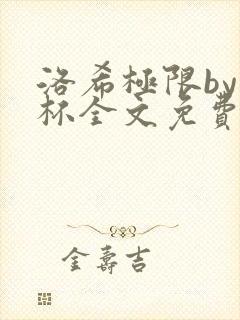 洛希極限by
杯全文免費
金壽吉